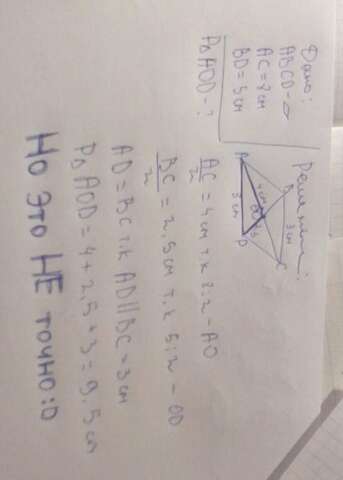 Дано:
ABCD - ▱
AC = 8 см
BD = 5 см
P∆ AOD - ?
Решение:
A
B
C
D
3 см
3 см
AC/2 = 4 см т.к 8:2 - AO
BC/2 = 2,5 см т.к 5:2 - OD
AD = BC т.к AD||BC = 3 см
P∆ AOD = 4 + 2,5 + 3 = 9.5 см
Но это НЕ точно:D